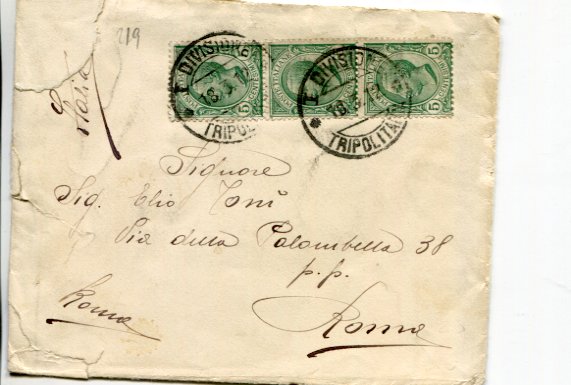 219
Italia
I DIVISIONE
18.3.1
TRIPOL
I DIVISIONE
18.3
TRIPOLITA
5
5
5
Signore
Sig. Elio Toni
Via della Palombella 38
p.p.
Roma
Roma